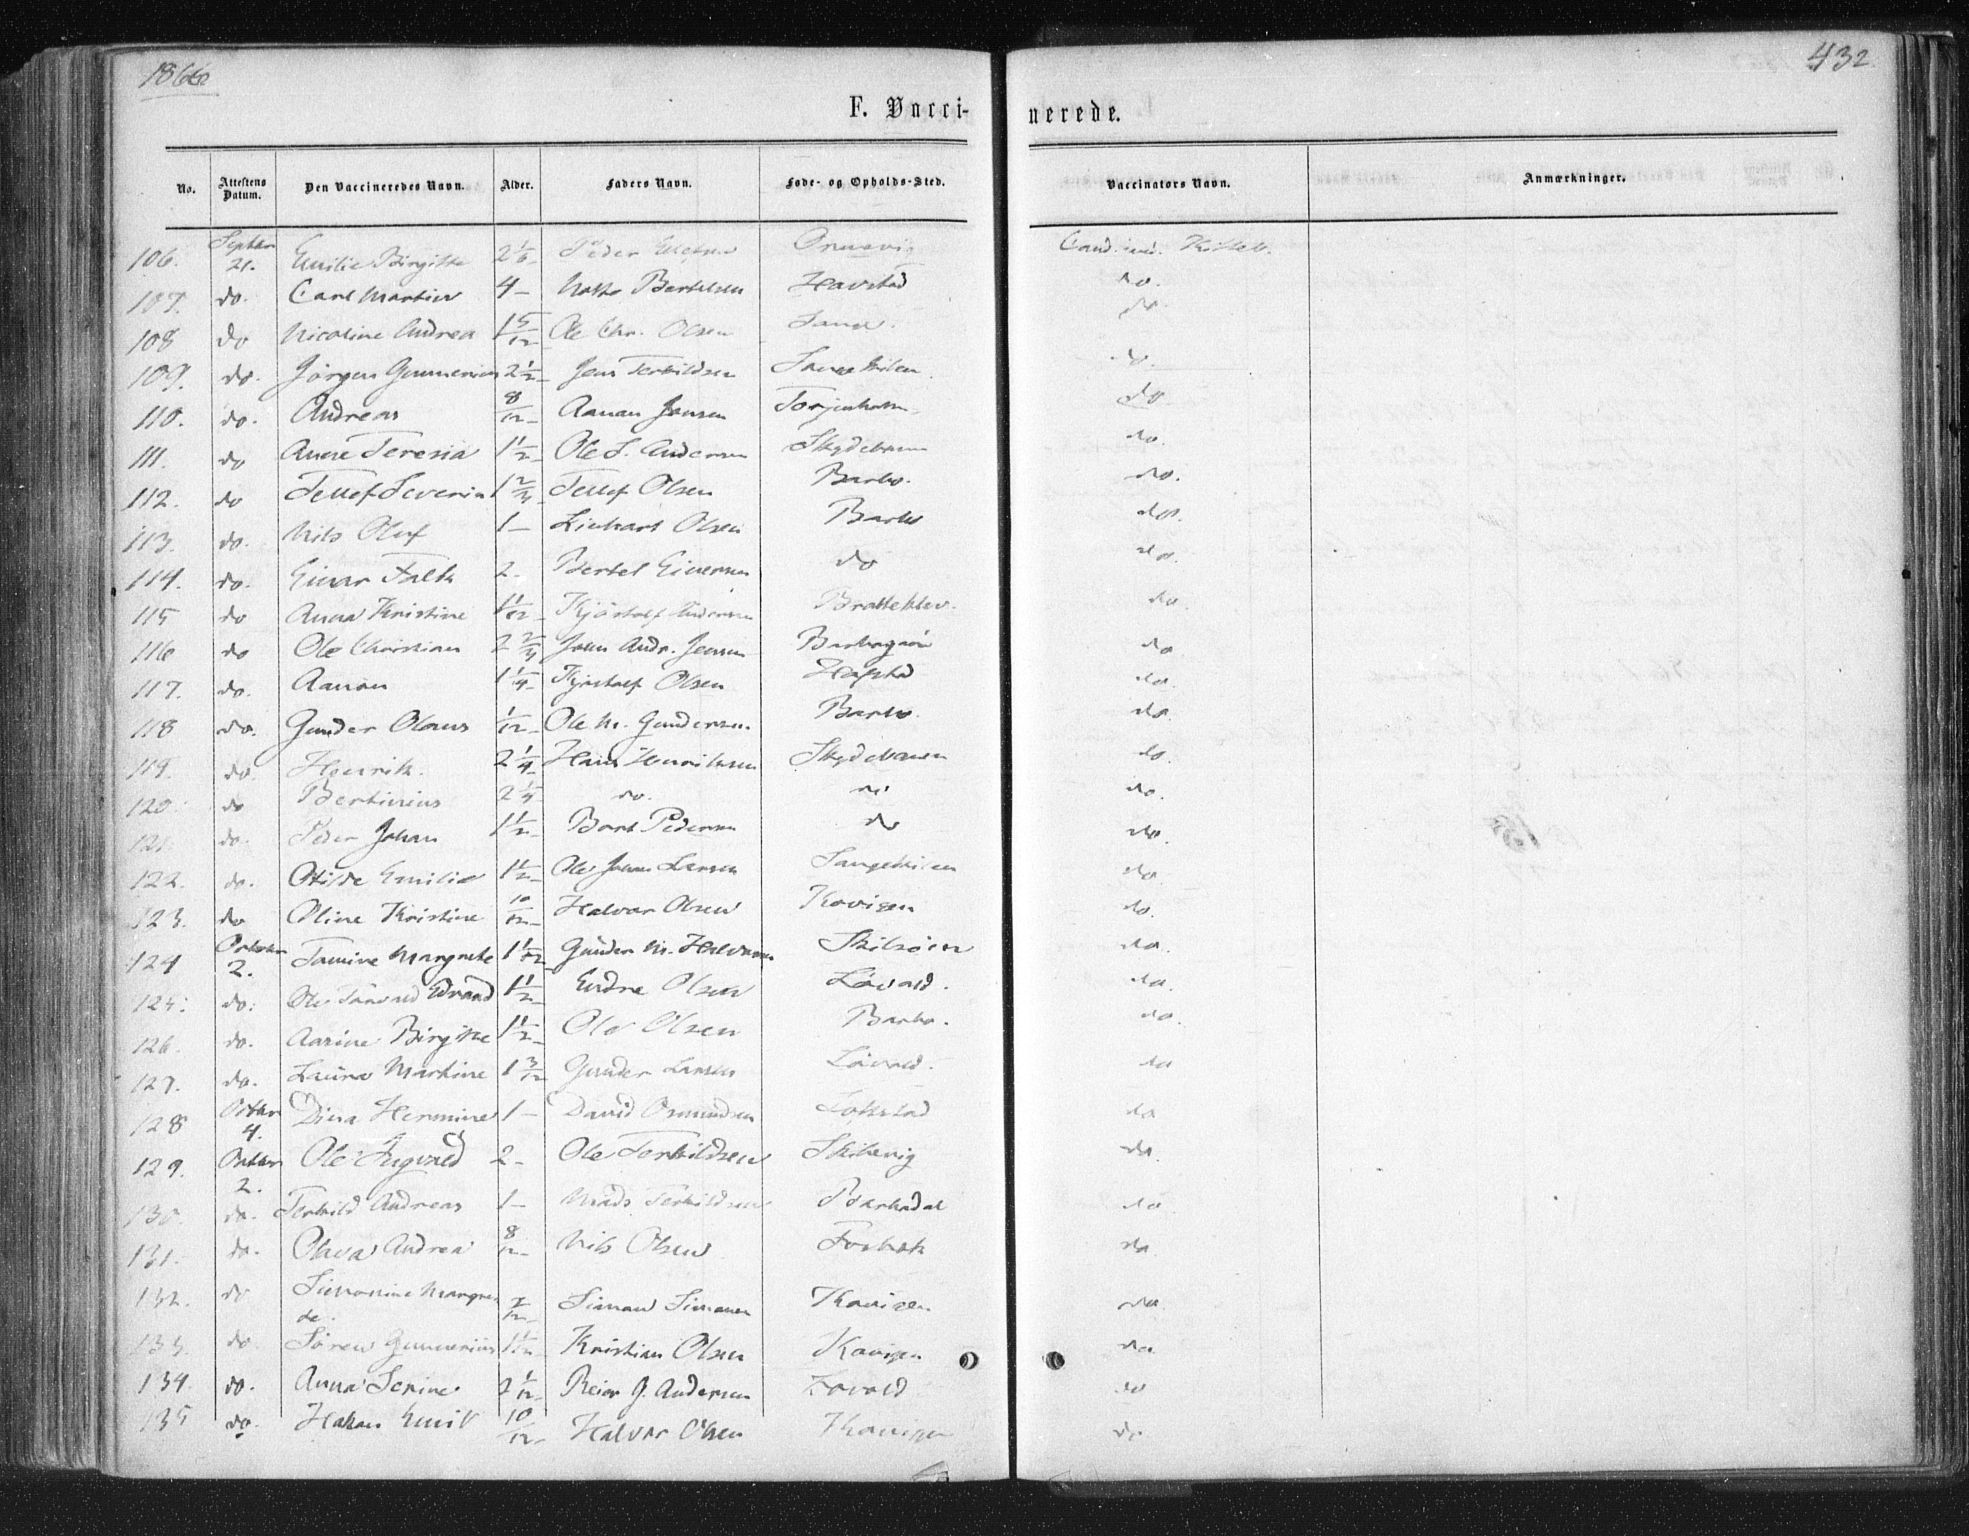 1866
432
F. Vacci-
nerede.
No. Attestens Datum. Den Vaccineredes Navn. Alder. Faders Navn. Føde- og Opholds-Sted. Vaccinators Navn. Anmærkninger.
106. Septbr 21. Emilie Birgitte Peder Cand. med.
107. do. Carl Martin 4 - Bertelsen Havstad do.
108 do Nicoline Andrea 1 5/12 Ole Chr. Olsen do
109. do. Jørgen Gunnerius 2 1/2 Jens Terkildsen do.
110. do. Andreas 8/12 - Aanan Jensen Torjusholm do.
111. do Anne Teresia 1 1/2 - Ole S. Andersen do.
112. do Tellef Severin Tellef Olsen Barbo. do.
113. do. Nils Oluf 1 - Linhart Olsen Barbo do.
114. do. Einar Falk 2 - Bertel Einersen do do
115 do Anna Kristine 1 1/12 - Brattekley. do
116 do Ole Christian 2 2/4 John Andr. Jensen do
117. do. Aanon 1 1/4 - Kjøstolf Olsen do.
118 do. Gunder Olaus 1/12 - Ole M. Gundersen. Barbo. do.
119. do. Henrik. 2 1/4 - Hans Henriksen do.
120. do Bertinius 2 1/4 do. do do.
121. do. Peder Johan 1 1/2 - Pedersen do do.
122. do. Otilde Emilie 1 1/2 - Ole Larsen do.
123. do Oline Kristine 10/12 - Halvor Olsen Kovigen do.
124 Octobr 2. Tomine Margrete 1 1/12 Gunder M. Halvorsen Skilsøen do.
125. do. Ole Edvard 1 1/2 - Endre Olsen Løvold. do.
126. do. Aasine Birgitte 1 1/2 - Ole Olsen Barbo. do.
127. do. Laura Martine 1 3/12 Gunder Larsen Løvold. do
128 Octbr 4. Dina Hermine 1 - David Osmundsen do
129. Octbr 2. Ole Ingvald 2 - Ole Terkildsen Skilsvig do.
130. do. Terkild Andreas 1 - Mads Terkildsen Barbodal do
131. do. Olava Andrea 8/12 - Nils Olsen do.
132. do Simonine Margre- de. 7/12 - Simon Simonsen Kovigen do.
133. do Søren Gunnerius Kristian Olsen Kovigen do
134. do. Anna Serine 2 1/12 - Reier J. Andersen Løvold do
135 do. Hakan Emil 10/12 - Halvor Olsen Kovigen do